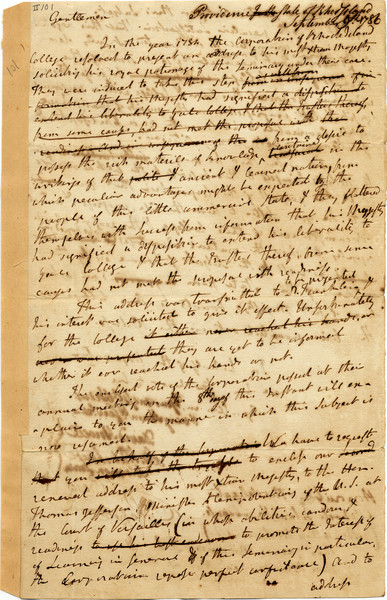 II / 101
Gentlemen Providence In the State of Rhode Island
September 9th 1786
In the year 1784, the Corporation of Rhode Island
College resolved to present an address to his most Xtian Majesty
soliciting his royal patronage of the Seminary under their care.
They were induced to take this step
that his Majesty had signified a disposition to
extend his liberality to Yale College & that the Trustees thereof
from some causes, had not met the proposal with
readiness from a desire to
possess the rich materials of knowledge, contained in the
writings of that polite & ancient & learned nation, from
which peculiar advantages might be expected to the
people of this little commercial State, & they flattered
themselves with success from information that his Majesty
had signified a disposition to extend his liberality to
Yale College & that the Trustees thereof from some
causes had not met the proposal with readiness.
This address was transmitted to Dr Franklin, &
his interest was solicited to give it effect. Unfortunately
for the College it either never reached his hands, or
was never presented they are yet to be informed
whether it ever reached his hands or not.
The enclosed vote of the Corporation passed at their
annual meeting on the 8th of the Instant will ex-
plain to you the manner in which this subject is
now resumed.
In behalf of the leave to request
that you to enclose our
renewal address to his most Xtian Majesty, to the Hon.
Thomas Jefferson Minister Plenipotentiary of the U.S. at
the Court of Versailles (in whose abilities, candour, &
readiness to promote the Interest of
of Learning in general & of this Seminary in particular,
the Corporation repose perfect confidence) and to
address